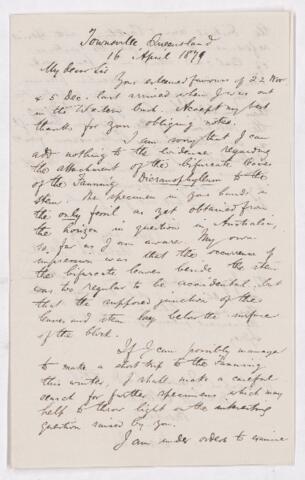 Townsville Queensland
16 April 1879
My dear Sir
Your esteemed favours of 22 Nov
& 5 Dec. last arrived when I was out
in the Western Bush. Accept my best
thanks for your obliging notes.
I am sorry that I can
add nothing to the evidence regarding
the attachment of the bifurcate leaves
of the Fanning Dicranophyllum to the
stem. The specimen in your hands is
the only fossil as yet obtained from
the horizon in question in Australia,
so far as I am aware. My own
impression was that the occurrence of
the bifurcate leaves beside the stem
was too regular to be accidental, but
that the supposed junction of the
leaves and stem lay below the surface
of the block.
If I can possibly manage
to make a short trip to the Fanning
this winter, I shall make a careful
search for further specimens which may
help to throw light on the interesting
question raised by you.
I am under orders to examine